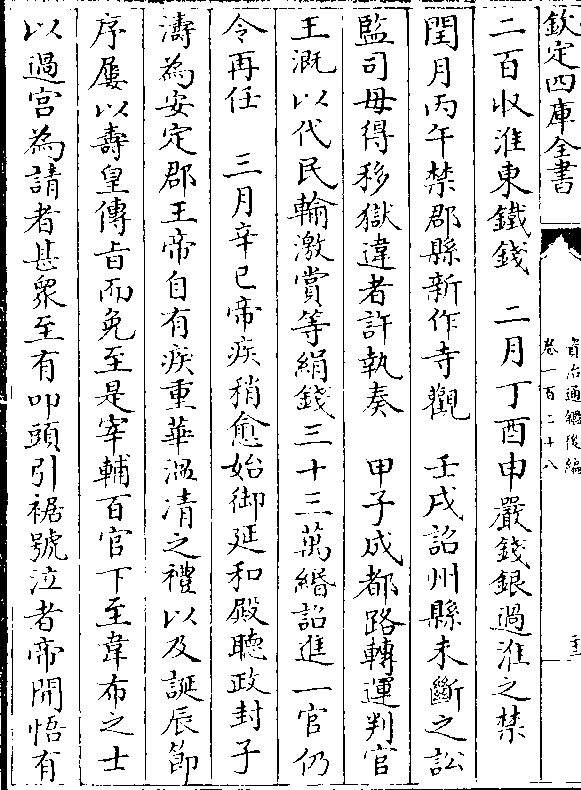 欽定四庫全書
資治通鑑後編
卷一百二十八
二百收淮東鐵錢　二月丁酉申嚴錢銀過淮之禁
閏月丙午禁郡縣新作寺觀　壬戌詔州縣未斷之訟
監司毋得移獄違者許執奏　甲子成都路轉運判官
王溉以代民輸激賞等絹錢三十三萬緡詔進一官仍
令再任　三月辛巳帝疾稍愈始御延和殿聽政封子
濤為安定郡王帝自有疾重華温凊之禮以及誕辰節
序屢以壽皇傳㫖而免至是宰輔百官下至韋布之士
以過宮為請者甚眾至有叩頭引裾號泣者帝開悟有